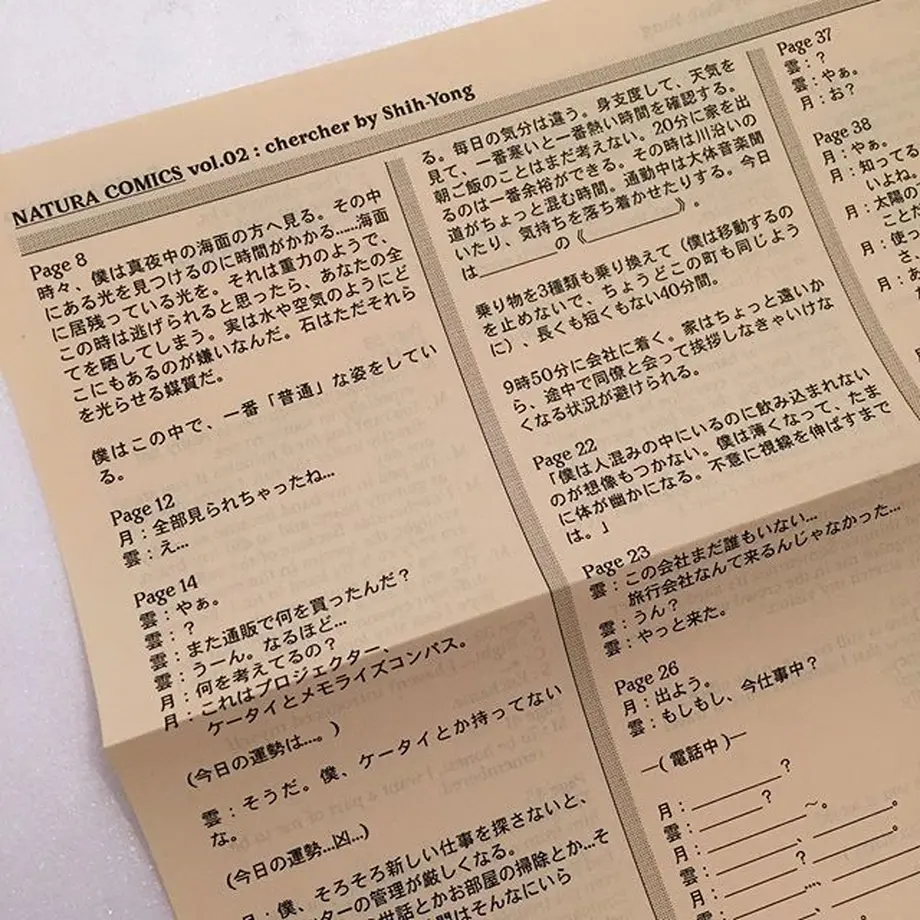 NATURA COMICS vol.02 : chercher by Shih-Yong
Page 8
時々、僕は真夜中の海面の方へ見る。その中
にある光を見つけるのに時間がかかる......海面
に居残っている光を。それは重力のようで、
この時は逃げられると思ったら、あなたの全
てを晒してしまう。実は水や空気のようにど
こにもあるのが嫌いなんだ。石はただそれら
を光らせる媒質だ。
僕はこの中で、一番「普通」な姿をしてい
る。
Page 12
月：全部見られちゃったね...
雲：え...
Page 14
雲：やぁ。
雲：？
雲：また通販で何を買ったんだ？
雲：うーん。なるほど...
月：何を考えてるの？
月：これはプロジェクター、
ケータイとメモライズコンパス。
(今日の運勢は....。)
雲：そうだ。僕、ケータイとか持ってない
な。
(今日の運勢...凶...)
月：僕、そろそろ新しい仕事を探さないと、
ターの管理が厳しくなる。
世話とかお部屋の掃除とか...そ
間はそんなにいら
る。毎日の気分は違う。身支度して、天気を
見て、一番寒いと一番熱い時間を確認する。
朝ご飯のことはまだ考えない。20分に家を出
るのは一番余裕ができる。その時は川沿いの
道がちょっと混む時間。通勤中は大体音楽聞
いたり、気持ちを落ち着かせたりする。今日
は________の《________》。
乗り物を3種類も乗り換えて（僕は移動するの
を止めないで、ちょうどこの町も同じよう
に）、長くも短くもない40分間。
9時50分に会社に着く。家はちょっと遠いか
ら、途中で同僚と会って挨拶しなきゃいけな
くなる状況が避けられる。
Page 22
「僕は人混みの中にいるのに飲み込まれない
のが想像もつかない。僕は薄くなって、たま
に体が幽かになる。不意に視線を伸ばすまで
は。」
Page 23
雲：この会社まだ誰もいない...
旅行会社なんて来るんじゃなかった...
雲：うん？
雲：やっと来た。
Page 26
月：出よう。
雲：もしもし、今仕事中？
—( 電話中 )—
月：________？
雲：________？
月：________～。
雲：________、________。
月：________？________。
雲：________....、________。
Page 37
雲：？
雲：やぁ。
月：お？
Page 38
月：やぁ。
月：知ってる
いよね。
月：太陽の
ことだ
月：使っ
さ、
月：あ
た